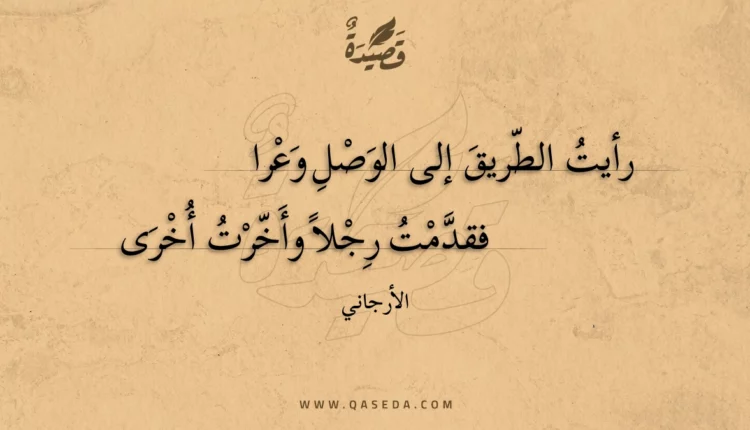 قَصِيْدَةٌ
رأيتُ الطّريقَ إلى الوَصْلِ وَعْرا
فقدَّمْتُ رِجْلاً وأَخّرْتُ أُخْرَى
الأرجاني
WWW.QASEDA.COM